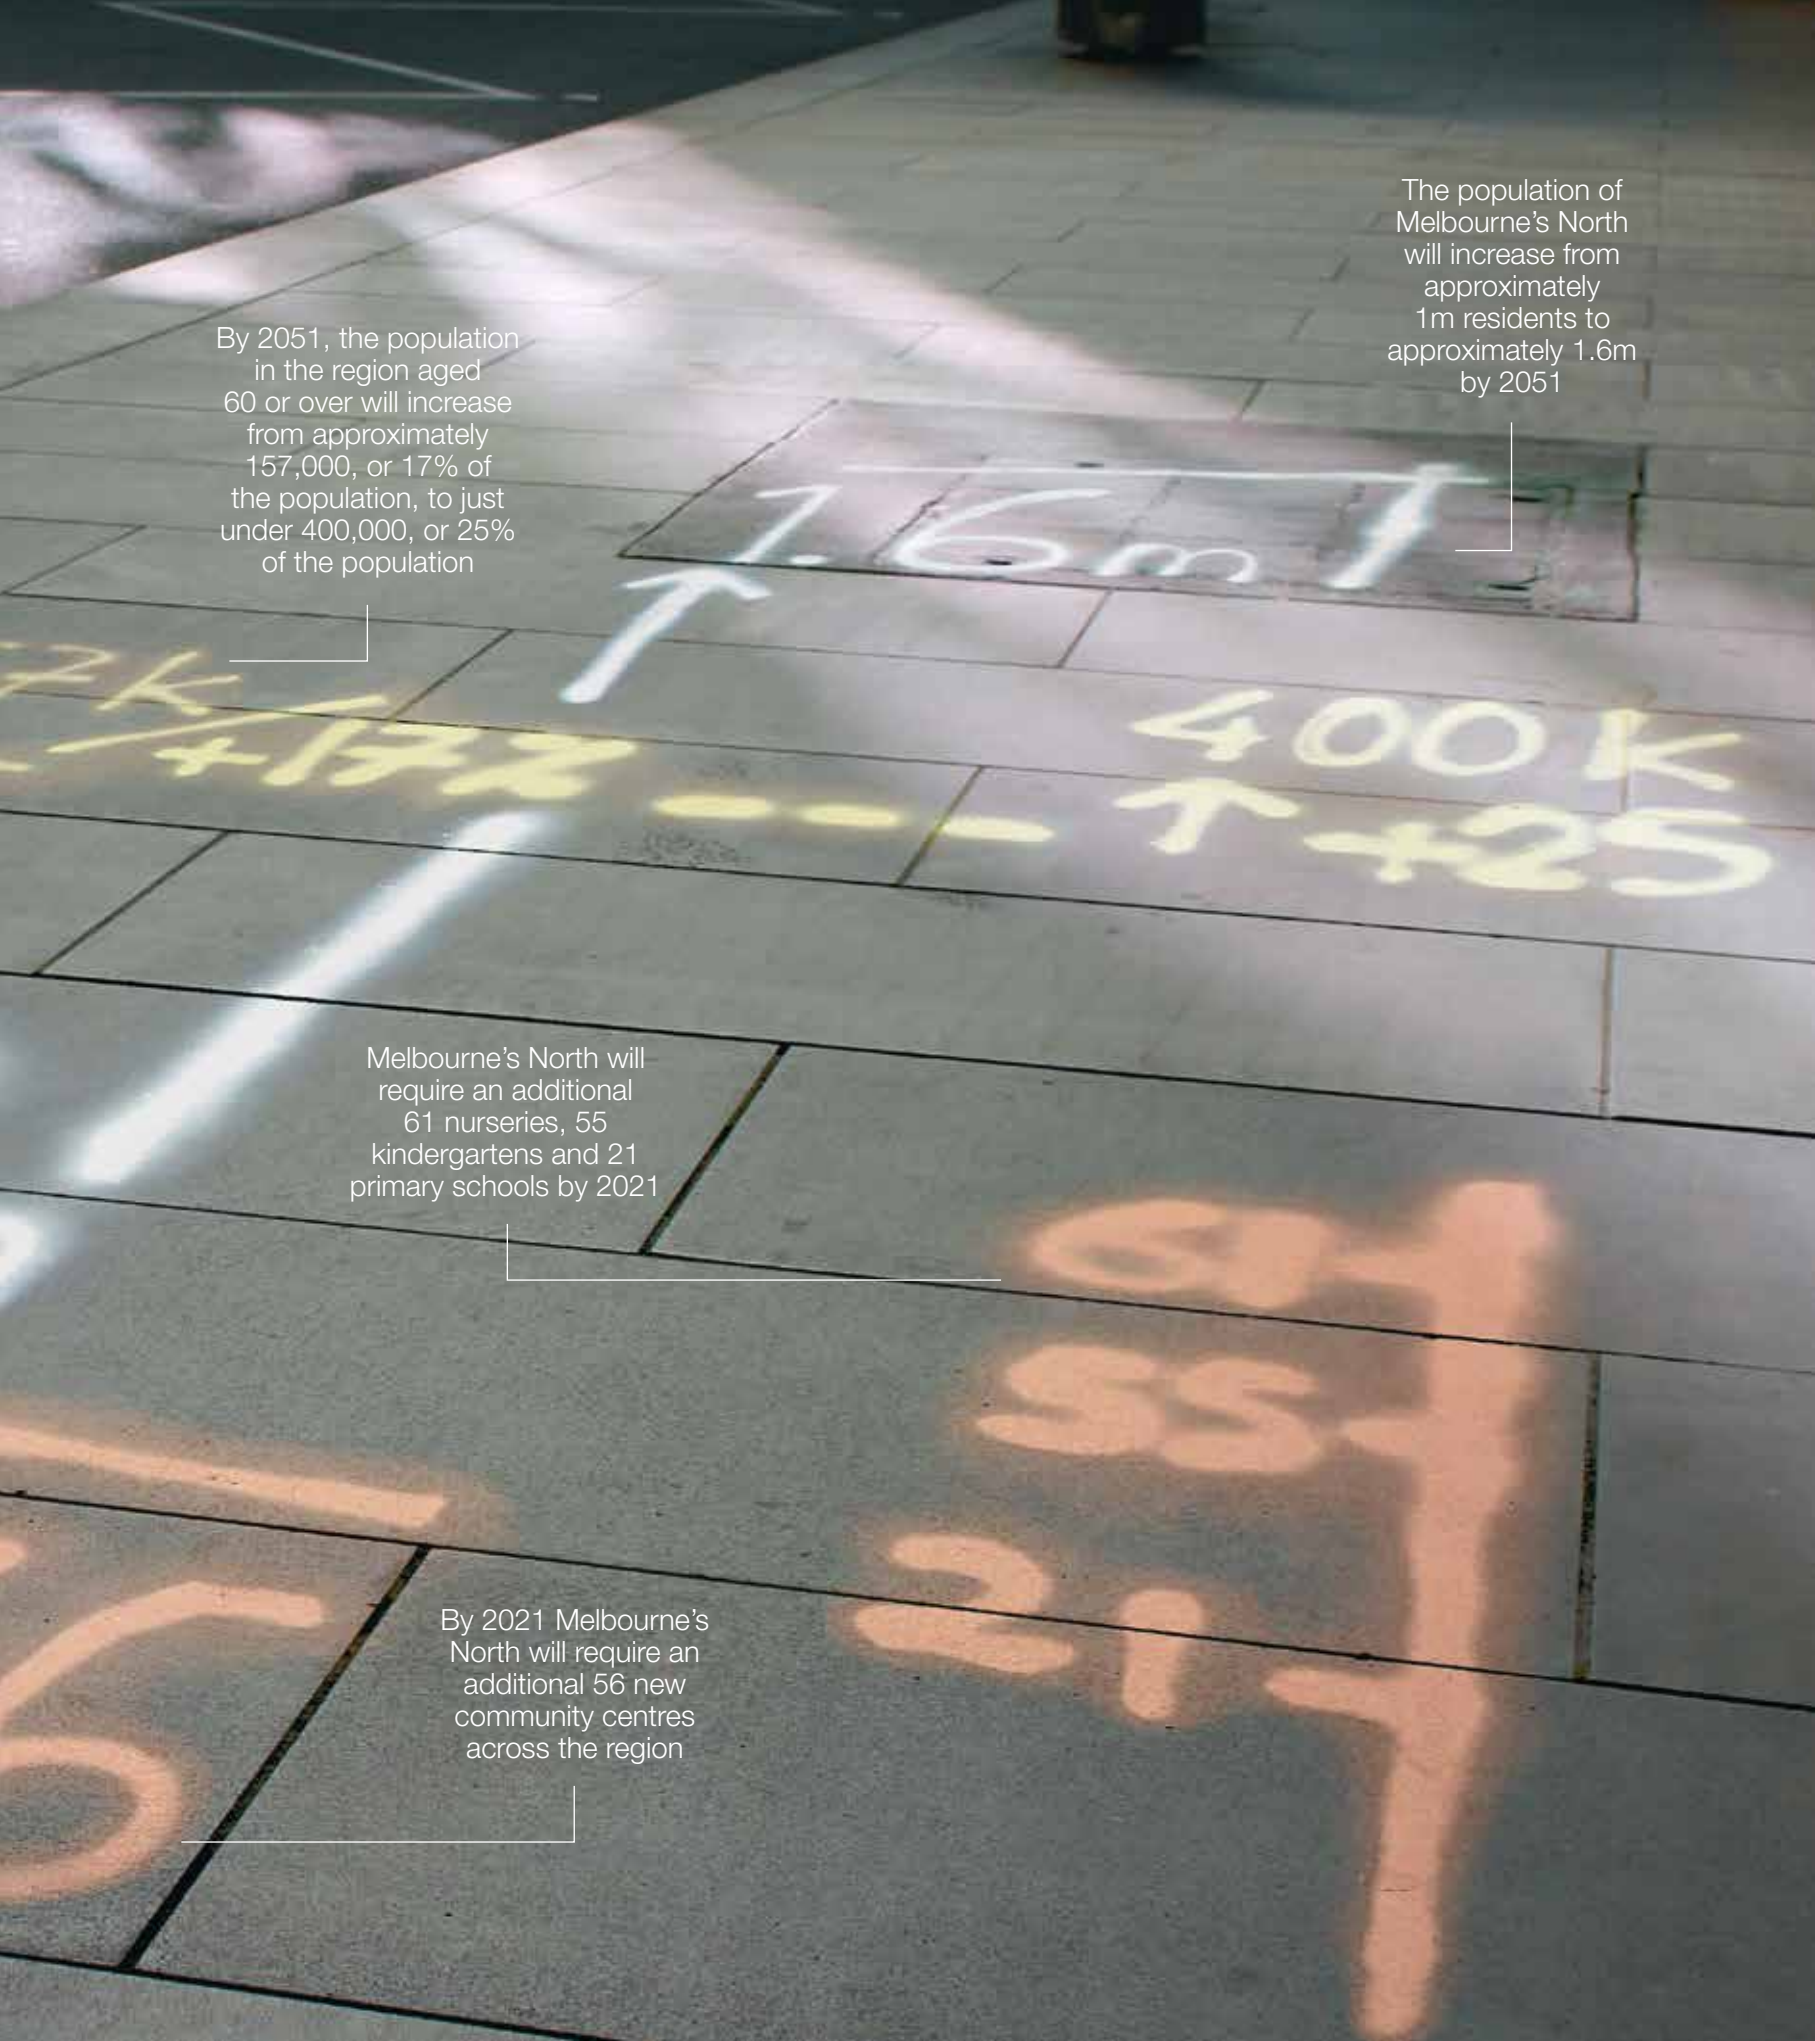 The population of
Melbourne's North
will increase from
approximately
1m residents to
approximately 1.6m
by 2051
By 2051, the population
in the region aged
60 or over will increase
from approximately
157,000, or 17% of
the population, to just
under 400,000, or 25%
of the population
1.6m
7K/+17%
400K
+25
Melbourne's North will
require an additional
61 nurseries, 55
kindergartens and 21
primary schools by 2021
61
55
21
By 2021 Melbourne's
North will require an
additional 56 new
community centres
across the region
6